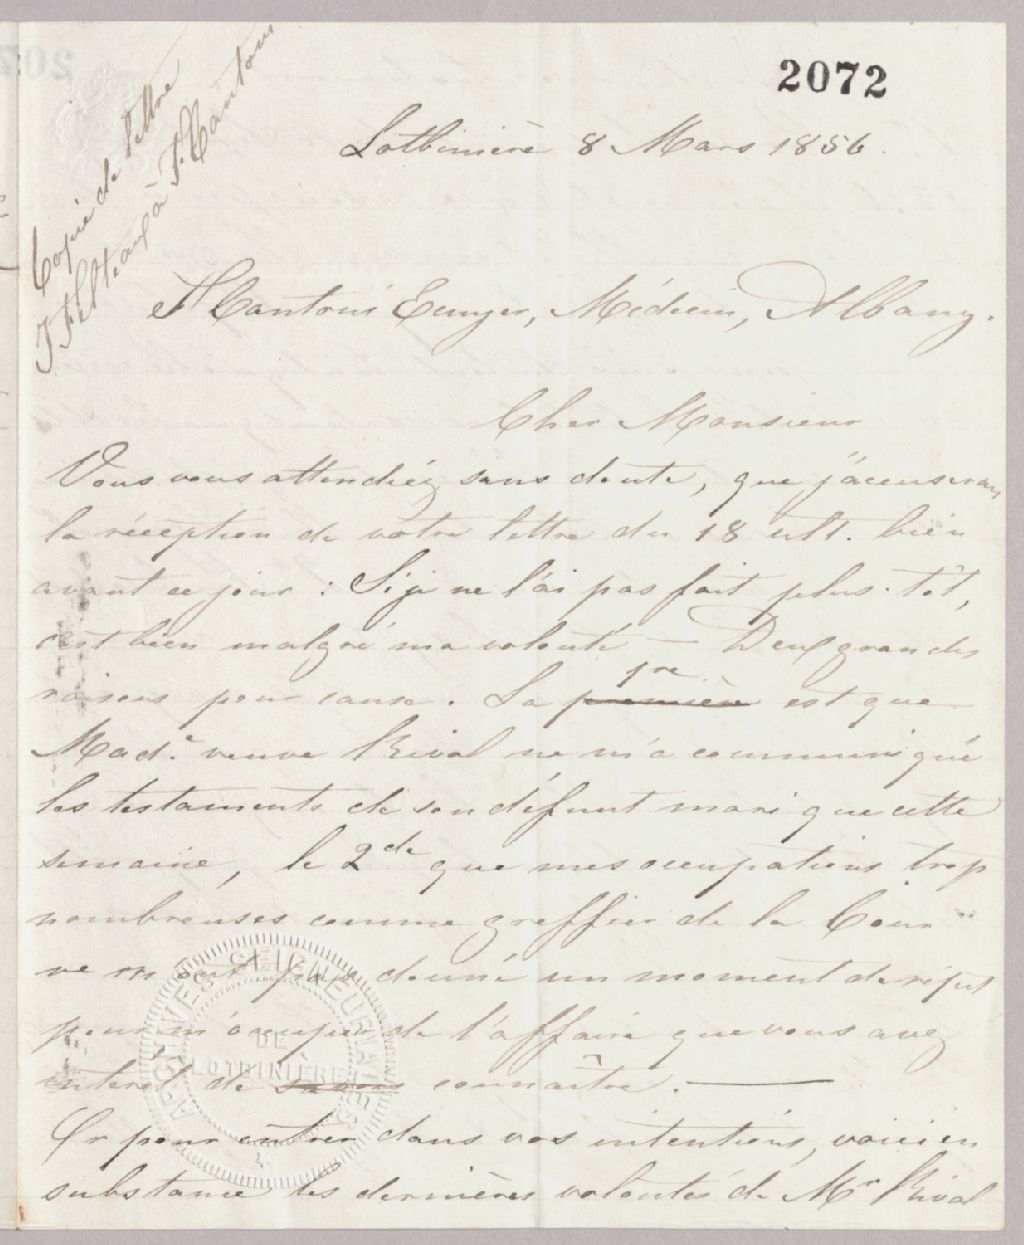 2072
Copie de lettre
J Filteau à F. Cantons
Lotbinière 8 Mars 1856.
F Cantons Ecuyer, Médecin, Albany.
Cher Monsieur
Vous vous attendiéz sans doute, que j'accuserais
la réception de votre lettre du 18 ult. bien
avant ce jour : Si je ne l'ai pas fait plus-tôt,
c'est bien malgré ma volonté — Deux grandes
raisons pour cause. La première 1re est que
Made. veuve Rival ne m'a communiqué
les testaments de son défunt mari que cette
semaine, la 2de que mes occupations trop
nombreuses comme greffier de la Cour
ne m'ont pas donné un moment de répit
pour m'occuper de l'affaire que vous avez
intérêt de savoir connaître. —
Or pour entrer dans vos intentions, voici en
substance les dernières volontés de Mr Rival
ARCHIVES SEIGNEURIALES
DE
LOTBINIÈRE